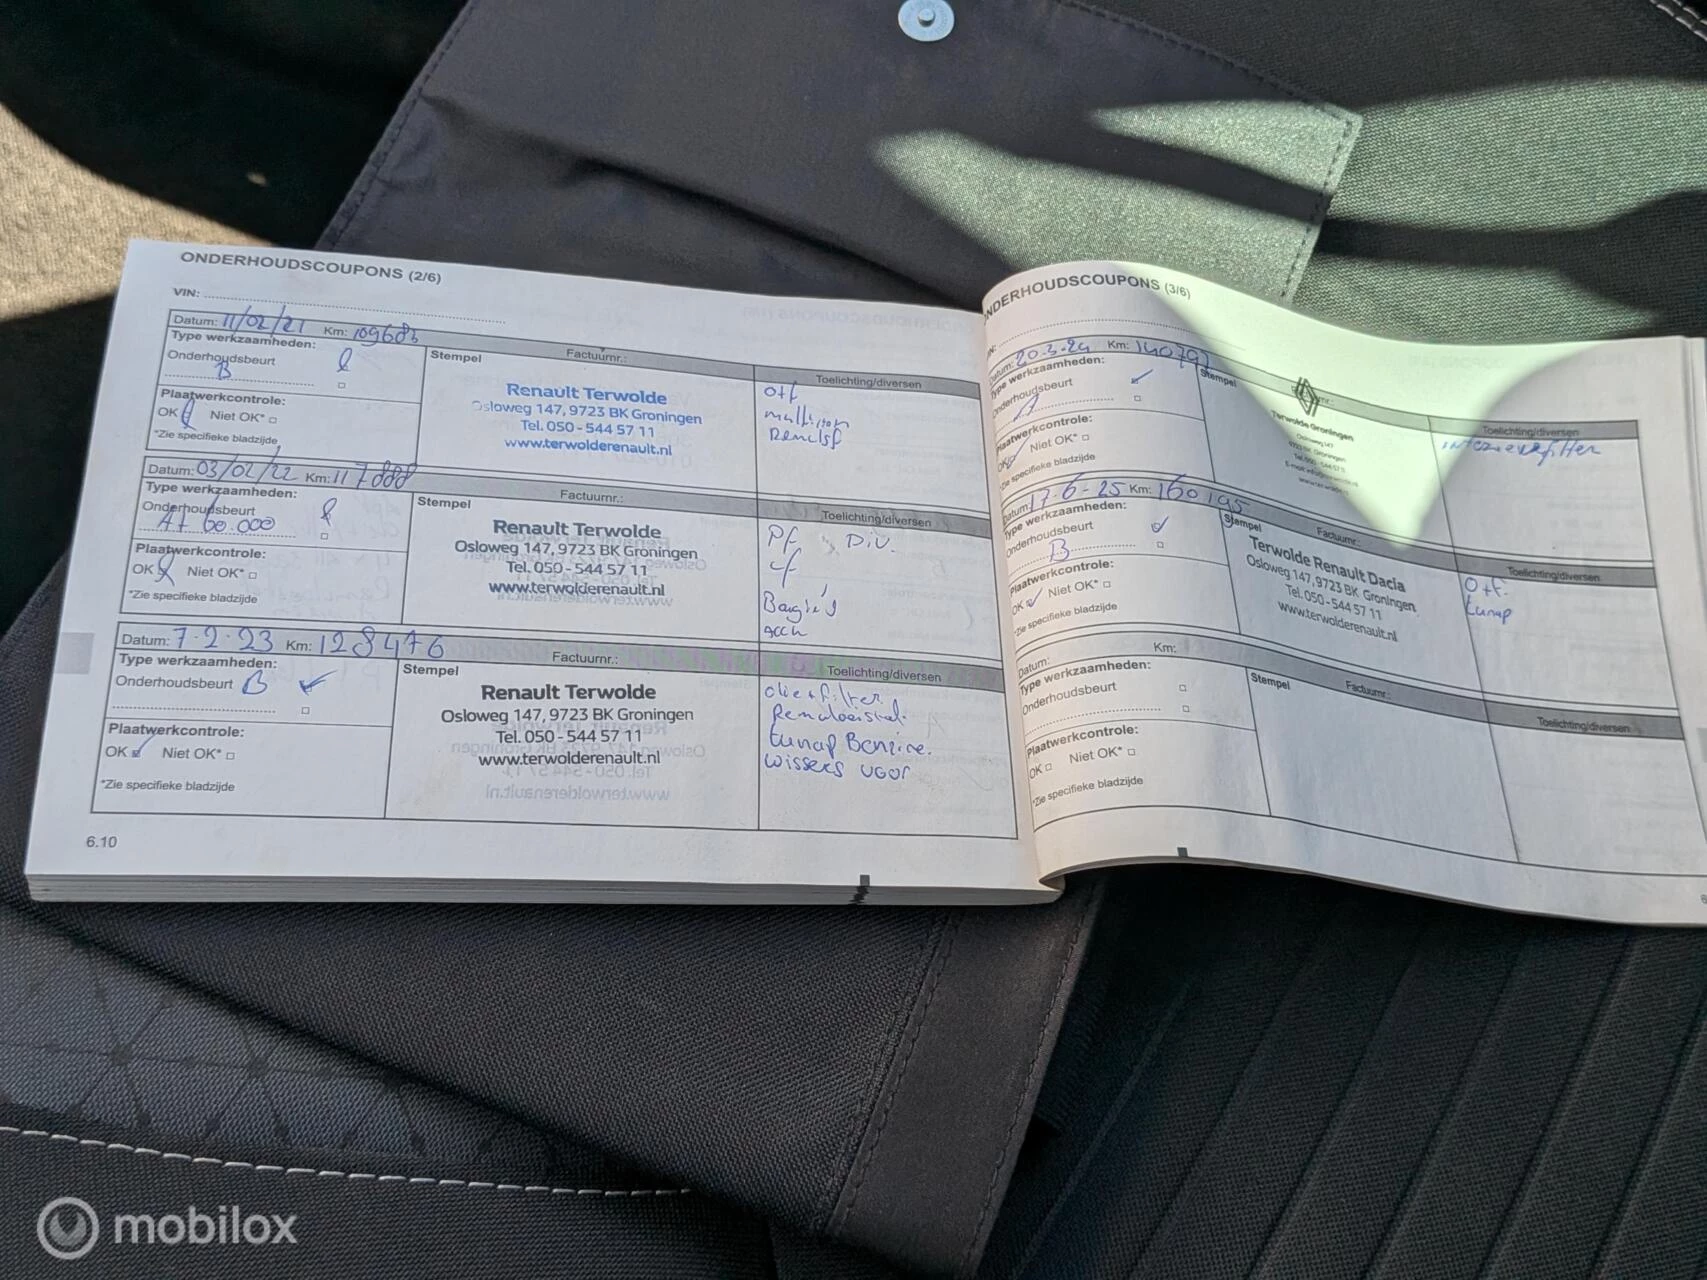 ONDERHOUDSCOUPONS (2/6)
VIN:
Datum: 11/02/21 Km: 109683
Type werkzaamheden:
Onderhoudsbeurt
B
Plaatwerkcontrole:
OK Niet OK*
*Zie specifieke bladzijde
Stempel
Factuurnr.:
Renault Terwolde
Osloweg 147, 9723 BK Groningen
Tel. 050 - 544 57 11
www.terwolderenault.nl
Toelichting/diversen
Off
Datum: 03/02/22 Km: 117888
Type werkzaamheden:
Onderhoudsbeurt
A+ 60.000
Plaatwerkcontrole:
OK Niet OK*
*Zie specifieke bladzijde
Stempel
Factuurnr.:
Renault Terwolde
Osloweg 147, 9723 BK Groningen
Tel. 050 - 544 57 11
www.terwolderenault.nl
Toelichting/diversen
Pf Div.
Datum: 7-2-23 Km: 128476
Type werkzaamheden:
Onderhoudsbeurt B
Plaatwerkcontrole:
OK Niet OK*
*Zie specifieke bladzijde
Stempel
Factuurnr.:
Renault Terwolde
Osloweg 147, 9723 BK Groningen
Tel. 050 - 544 57 11
www.terwolderenault.nl
Toelichting/diversen
oliefilter
Remvloeistof
tunap Benzine.
wissers voor
6.10
ONDERHOUDSCOUPONS (3/6)
Datum: 20-3-24 Km: 140797
Type werkzaamheden:
Onderhoudsbeurt
Plaatwerkcontrole:
OK Niet OK*
*Zie specifieke bladzijde
Stempel
Terwolde Groningen
Osloweg 147
9723 BK Groningen
Tel. 050 - 544 57 11
www.terwolde.nl
Toelichting/diversen
interieurfilter
Datum: 17-6-25 Km: 160195
Type werkzaamheden:
Onderhoudsbeurt
B
Plaatwerkcontrole:
OK Niet OK*
*Zie specifieke bladzijde
Stempel
Factuurnr.:
Terwolde Renault Dacia
Osloweg 147, 9723 BK Groningen
Tel. 050 - 544 57 11
www.terwolderenault.nl
Toelichting/diversen
Off.
tunap
Datum: Km:
Type werkzaamheden:
Onderhoudsbeurt
Plaatwerkcontrole:
OK Niet OK*
*Zie specifieke bladzijde
Stempel
Factuurnr.:
Toelichting/diversen
mobilox